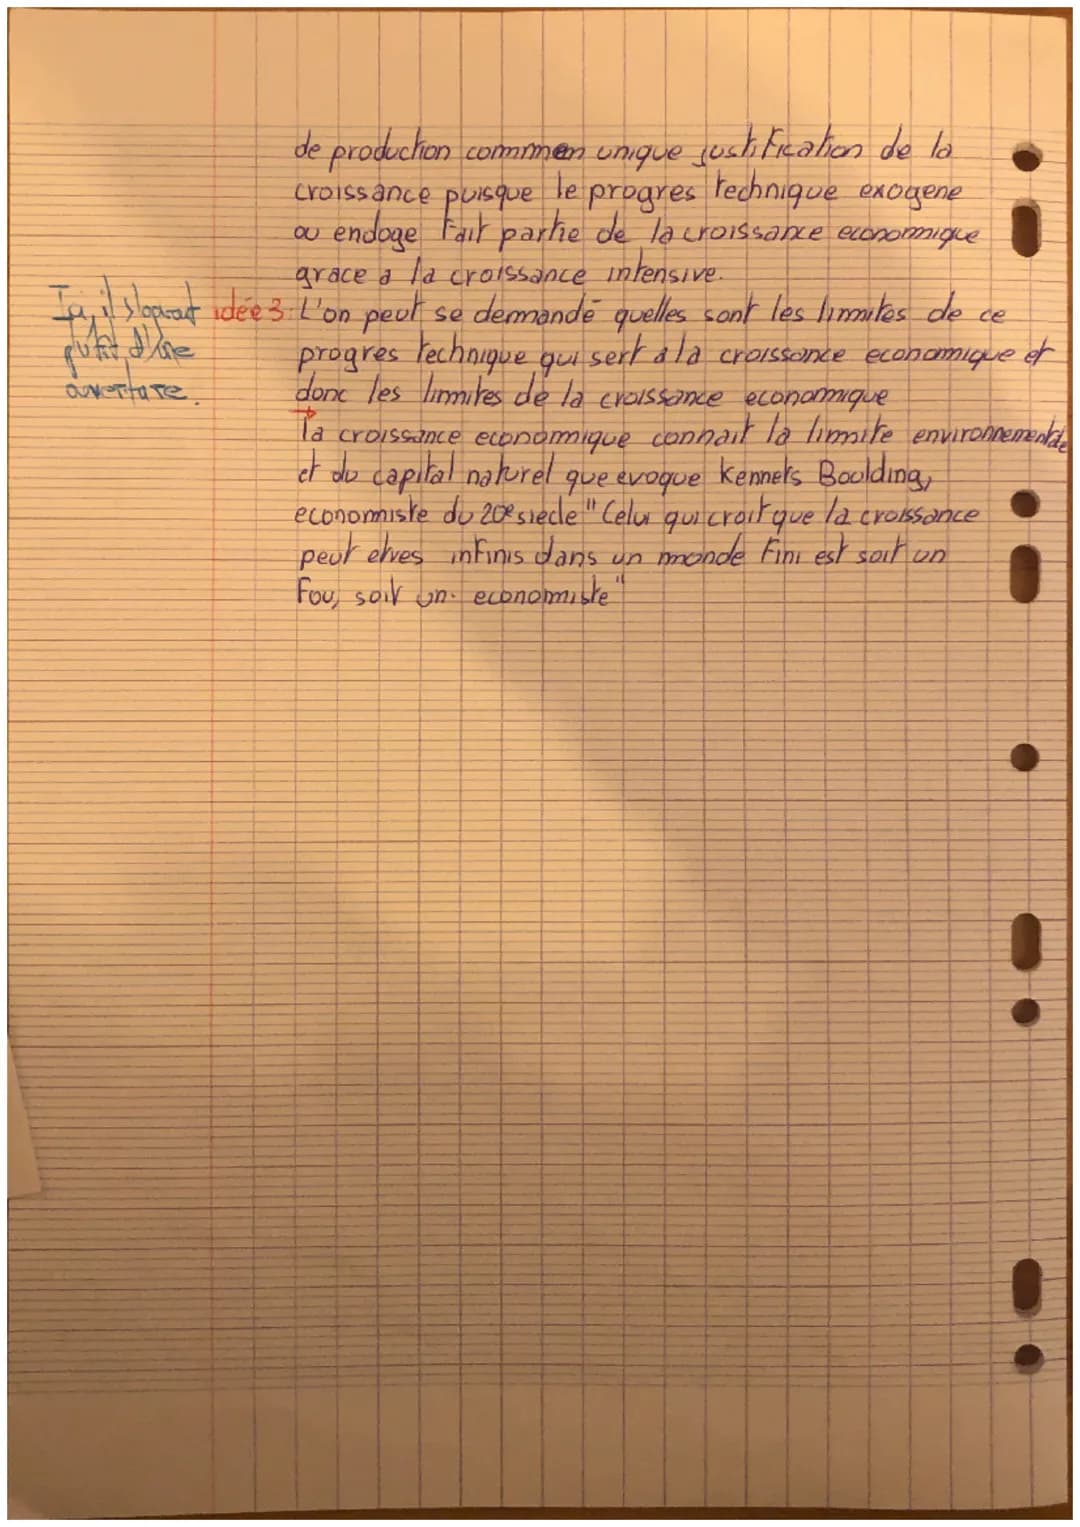 de production commmen unique justification de la
croissance puisque le progres technique exogene
ou endoge fait partie de la croissance economique
grace a la croissance intensive.
Ici, il s'agirait
plutôt d'une
ouverture.
idée 3: L'on peut se demandé quelles sont les limites de ce
progres technique qui sert a la croissance economique et
donc les limites de la croissance economique
→
la croissance economique connait la limite environnementale
et du capital naturel que evoque Kennets Boulding,
economiste du 20e siecle "Celui qui croit que la croissance
peut etres infinis dans un monde fini est soit un
fou, soit un economiste"